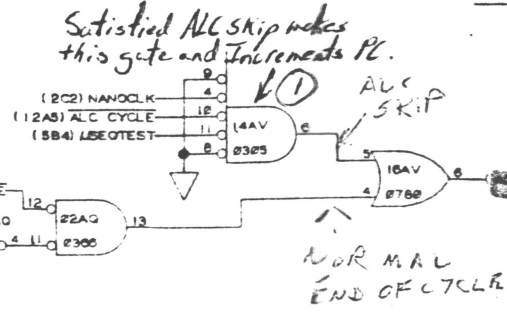 Satisfied ALC skip makes
this gate and Increments PC.
1
ALC
SKIP
9
(2C2) NANOCLK 4
(12A5) ALC CYCLE 12
(5B4) USEQTEST 11
8
14AV
0305
6
5
16AV
0780
6
4
12
22AQ
0366
13
4 11
NORMAL
END OF CYCLE